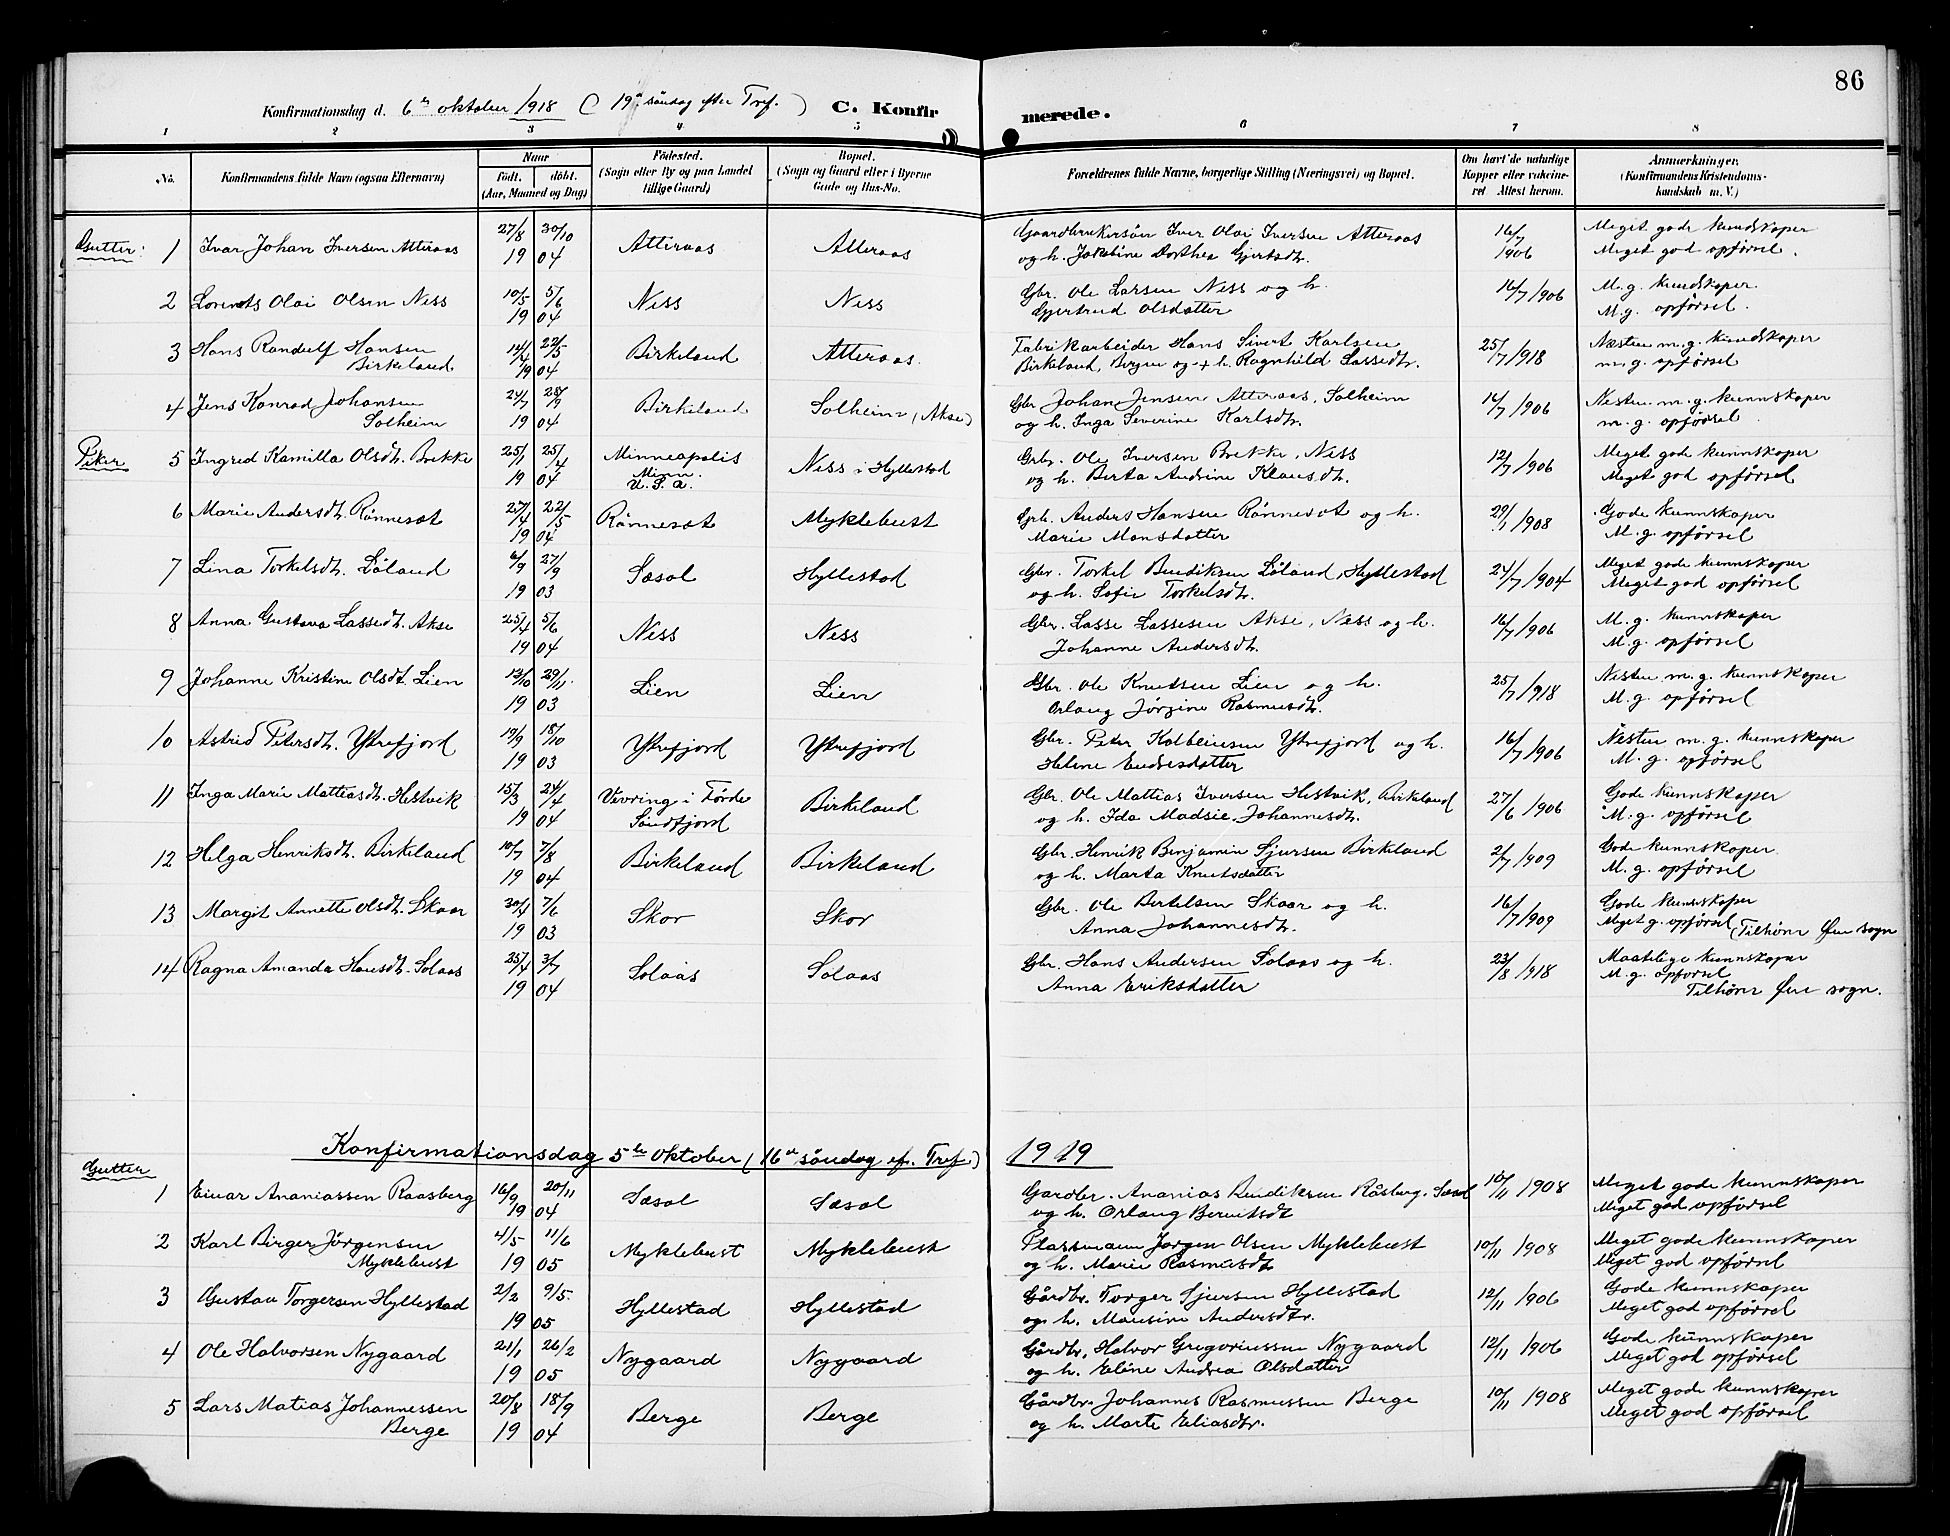 86
Konfirmationsdag d. 6te oktober 1918 (19de söndag efter Tref.) C. Konfirmerede.
1 2 3 4 5 6 7 8
No. Konfirmandens fulde Navn (ogsaa Efternavn) Naar födt. döbt. (Aar, Maaned og Dag) Födested. (Sogn eller By og paa Landet tillige Gaard) Bopæl. (Sogn og Gaard eller i Byerne Gade og Hus-No. Forældrenes fulde Navne, borgerlige Stilling (Næringsvei) og Bopæl. Om havt de naturlige Kopper eller vaccineret Attest herom. Anmærkninger. (Konfirmandens Kristendomskundskab m. V.)
Gutter: 1 Ivar Johan Iversen Atteraas 27/8 30/10 1904 Atteraas Atteraas Gaardbrukersön Iver Olai Iversen Atteraas 16/7 1906 Meget gode kundskaper
og h. Jakobine Dorthea Gjertsdtr. Meget god opförsel.
2 Lorents Olai Olsen Ness 10/5 5/6 1904 Ness Ness Gbr. Ole Larsen Ness og h. 16/7 1906 M. g. kundskaper.
Gjertrud Olsdatter M. g. opförsel.
3 Hans Randulf Hansen Birkeland 14/4 22/5 1904 Birkeland Atteraas. Fabrikarbeider Hans Sivert Karlsen 25/7 1918 Næsten m. g. kundskaper
Birkeland, Bergen og + h. Ragnhild Lassedtr. m. g. opförsel
4 Jens Konrad Johansen Solheim 24/7 28/9 1904 Birkeland Solheim (Akse) Gbr Johan Jensen Atteraas, Solheim 16/7 1906 Nesten m. g. kunnskaper
og h. Inga Severine Karlsdtr. m. g. opförsel.
Piker 5 Ingred Kamilla Olsdtr. Brekke 25/1 25/4 1904 Minneapolis Minn. U. S. A. Ness i Hyllestad Grbr. Ole Iversen Brekke, Ness 12/7 1906 Meget god kunnskaper
og h. Berta Andrine Klausdtr. Meget god opförsel
6 Marie Andersdtr. Rönnesæt 27/4 22/5 1904 Rönnesæt Myklebust Grb. Anders Hansen Rönnesæt og h. 29/1 1908 Gode kunnskaper
Marie Monsdatter M. g. opförsel
7 Lina Torkelsdtr. Löland 6/9 27/9 1903 Sæsol Hyllestad Gbr. Torkel Bendiksen Löland, Hyllestad 24/7 1904 Meget gode kunnskaper
og h. Sofie Torkelsdtr. Meget god opförsel
8 Anna Gustava Lassedtr. Akse 25/4 5/6 1904 Ness Ness Gbr. Lasse Lassesen Akse, Ness og h. 16/7 1906 M. g. kunnskaper
Johanne Andersdtr. M. g. opförsel
9 Johanne Kristine Olsdtr. Lien 12/10 29/11 1903 Lien Lien Gbr. Ole Knutsen Lien og h. 25/7 1918 Nesten m. g. kunnskaper
Orlaug Jörgine Rasmusdtr. M. g. opförsel
10 Astrid Petersdtr. Ytrefjord 17/9 18/10 1903 Ytrefjord Ytrefjord Gbr. Peter Kolbeinsen Ytrefjord og h. 16/7 1906 Nesten m. g. kunnskaper
Helene Endresdatter M. g. opförsel
11 Inga Marie Mattiasdtr. Hestvik 15/3 24/4 1904 Vevring i Förde Söndfjord Birkeland Gbr. Ole Mattias Iversen Hestvik, Birkeland 27/6 1906 Gode kunnskaper
og h. Ida Madsie Johannesdtr. M. g. opförsel
12 Helga Henriksdtr. Birkeland 10/7 7/8 1904 Birkeland Birkeland Gbr. Henrik Benjamin Sjursen Birkeland 2/7 1909 Gode kunnskaper.
og h. Marta Knutsdatter M. g. opförsel
13 Margit Annette Olsdtr. Skaar 30/4 7/6 1903 Skor Skor Gbr. Ole Bertelsen Skaar og h. 16/7 1909 Gode kunnskaper
Anna Johannesdtr. Meget g. opförsel (Tilhörer Öen sogn
14 Ragna Amanda Hansdtr. Solaas 25/4 3/7 1904 Solaas Solaas Gbr. Hans Andersen Solaas og h. 23/8 1918 Maatelige kunnskaper
Anna Eriksdatter M. g. opförsel
Tilhörer Öen sogn.
Konfirmationsdag 5te Oktober (16de söndag ef. Tref.) 1919
Gutter 1 Einar Ananiassen Raasberg 16/9 20/11 1904 Sæsol Sæsol Gardbr. Ananias Bendiksen Råsberg, Sæsol 10/11 1908 Meget gode kunnskaper
og h. Orlaug Berentsdt Meget god opförsel
2 Karl Birger Jörgensen Myklebust 4/5 11/6 1905 Myklebust Myklebust Plassmann Jørgen Olsen Myklebust 10/11 1908 Meget gode kunnskaper
og h. Marie Rasmusdtr Meget god opförsel
3 Gustav Torgersen Hyllestad 2/2 9/5 1905 Hyllestad Hyllestad Gårdbr. Torger Sjursen Hyllestad 12/11 1906 Gode kunnskaper
og h. Mansine Andersdtr. Meget god opförsel
4 Ole Halvorsen Nygaard 21/1 26/2 1905 Nygaard Nygaard Gårdbr. Halvor Gregoriussen Nygaard 12/11 1906 Gode kunnskaper
og h. Eline Andrea Olsdatter Meget god opförsel
5 Lars Matias Johannessen Berge 20/8 18/9 1904 Berge Berge Gårdbr. Johannes Rasmussen Berge 10/11 1908 Meget gode kunnskaper
og h. Marte Eliasdtr. Meget god opförsel